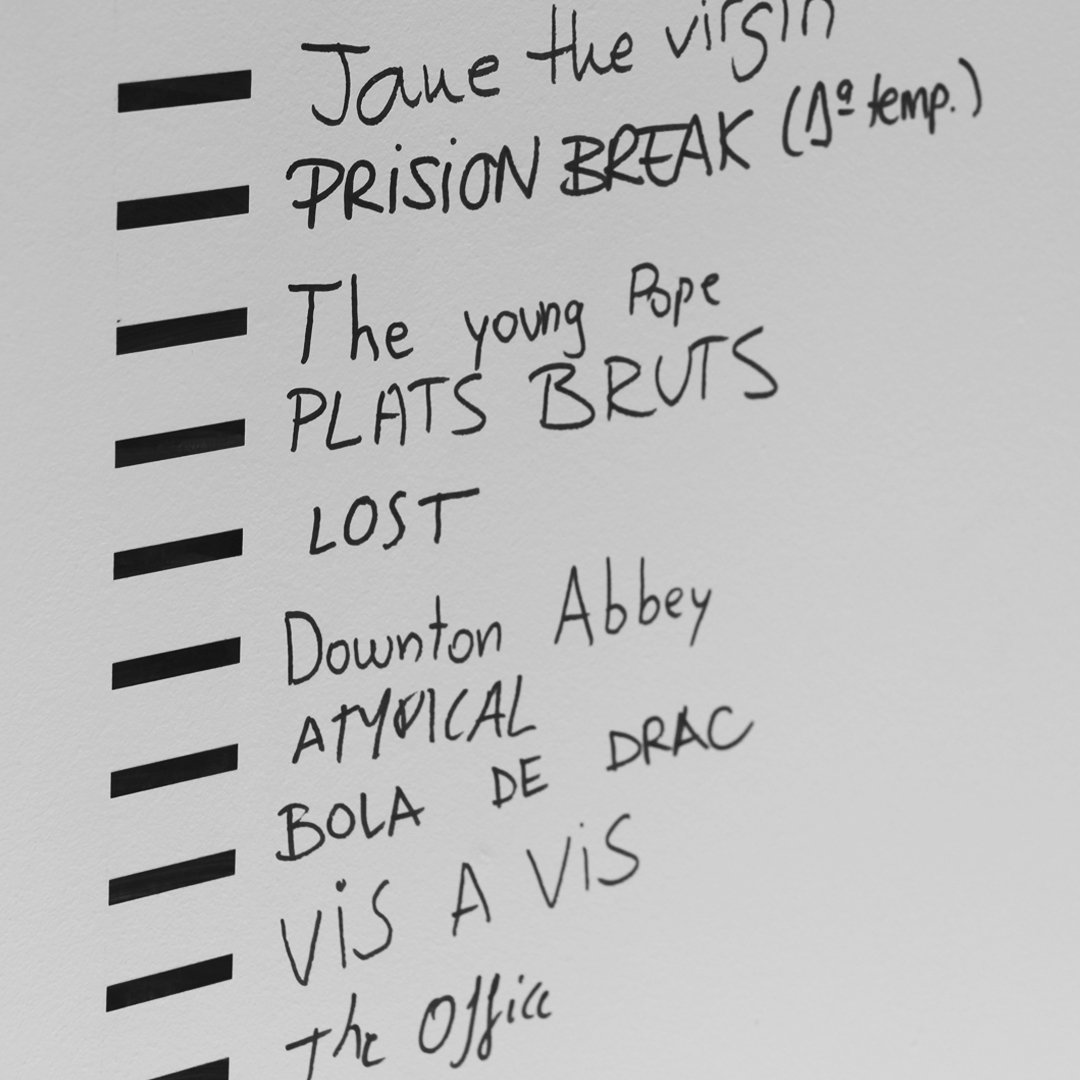 Jane the virgin
PRISION BREAK (1ª temp.)
The young Pope
PLATS BRUTS
LOST
Downton Abbey
ATYPICAL
BOLA DE DRAC
ViS A ViS
The Office